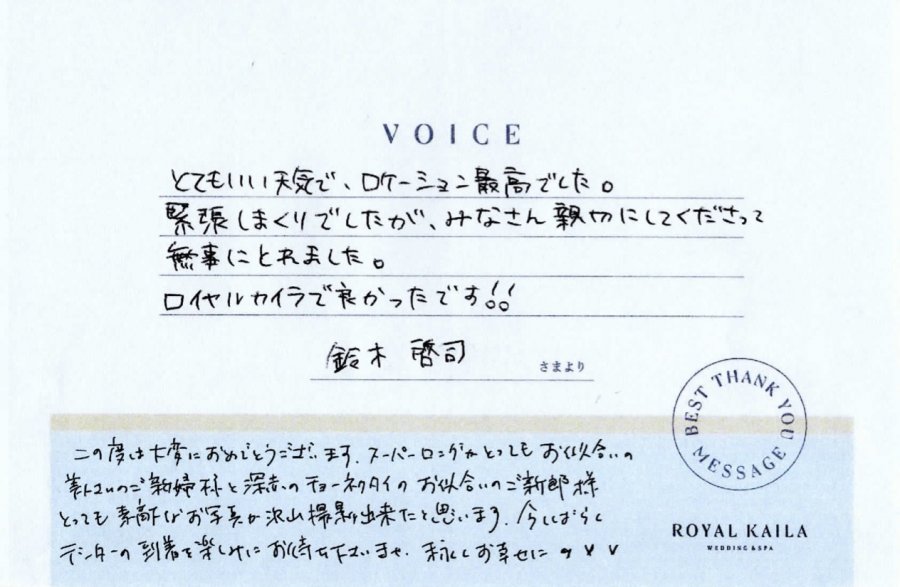 VOICE
とてもいい天気で、ロケーション最高でした。
緊張しまくりでしたが、みなさん親切にしてくださって
無事にとれました。
ロイヤルカイラで良かったです!!
鈴木 啓司
さまより
BEST THANK YOU MESSAGE
この度は大変におめでとうございます。スーパーロングがとってもお似合いの
美しいのご新婦様と深赤の蝶ネクタイのお似合いのご新郎様
とっても素敵なお写真が沢山撮影出来たと思います。今しばらく
データーの到着を楽しみにお待ち下さいませ。末永くお幸せに
ROYAL KAILA
WEDDING & SPA